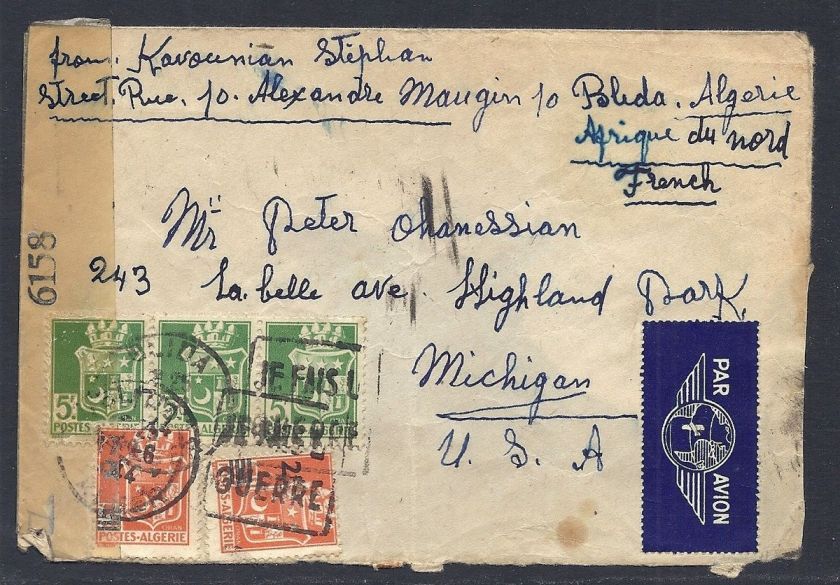 from. Kavounian Stéphan
Street. Rue. 10. Alexandre Maugin 10 Blida. Algerie
Afrique du nord
French
Mr Peter Ohanessian
243 La belle ave Highland Park,
Michigan
U. S. A
6158
PAR AVION
BLIDA
5F
POSTES ALGERIE
JE FAIS
GUERRE
POSTES-ALGERIE
S-ALGERIE